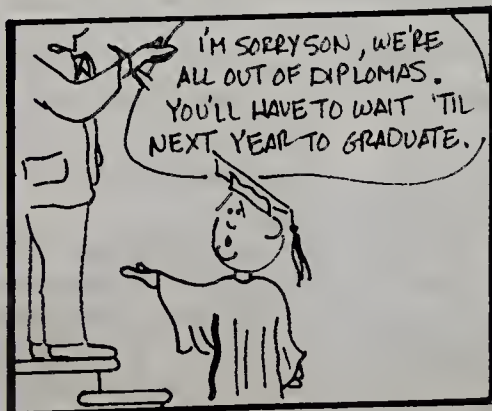 I'M SORRY SON, WE'RE
ALL OUT OF DIPLOMAS.
YOU'LL HAVE TO WAIT 'TIL
NEXT YEAR TO GRADUATE.